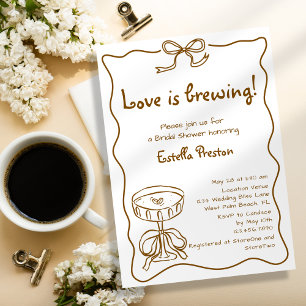 Love is brewing!
Please join us for
a Bridal Shower honoring
Estella Preston
May 28 at 9:30 am
Location Venue
Wedding Bliss Lane
West Palm Beach, FL
RSVP to Candace
by May 10th
123.456.7890
Registered at StoreOne and
StoreTwo